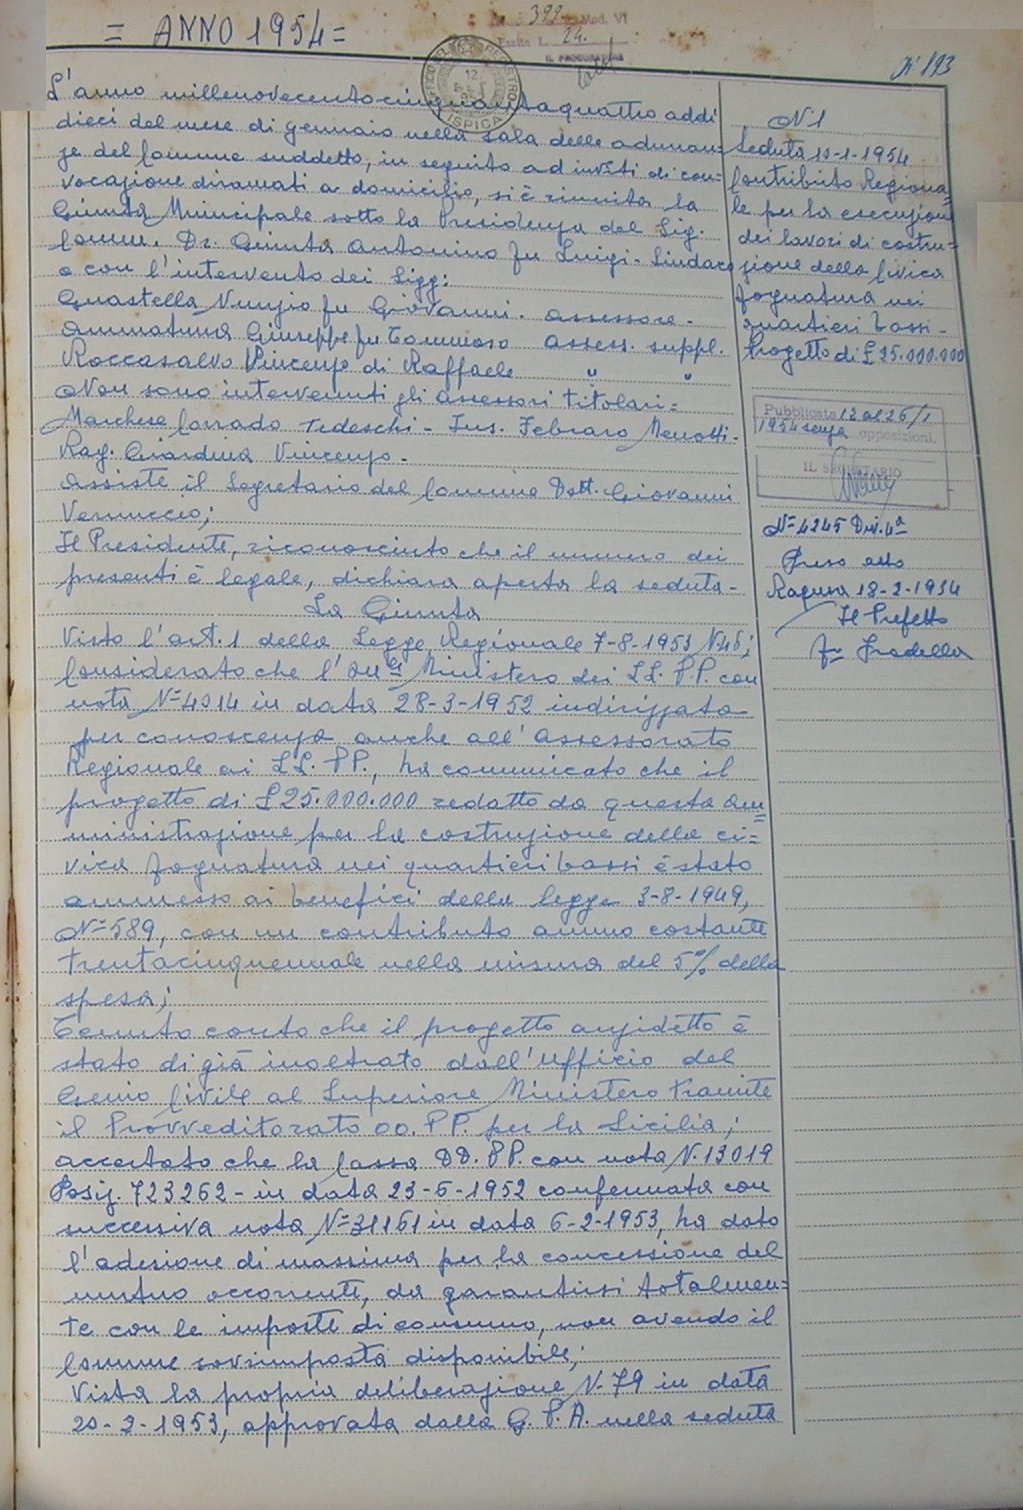 = ANNO 1954 =
N. 399 Mod. VI
Esatte L. 24.
IL PROCURATORE
N. 193
UFFICIO DEL REGISTRO
12
ISPICA
L'anno millenovecentocinquantaquattro addì
dieci del mese di gennaio nella sala delle adunan=
ze del Comune suddetto, in seguito ad inviti di con=
vocazione diramati a domicilio, si è riunita la
Giunta Municipale sotto la Presidenza del Sig.
Comm. Dr. Giunta Antonino fu Luigi - Sindaco
e con l'intervento dei Sigg:
Guastella Nunzio fu Giovanni. assessore -
Ammatuna Giuseppe fu Tommaso assess. suppl.
Roccasalvo Vincenzo di Raffaele " "
Non sono intervenuti gli assessori titolari=
Marchese Corrado Tedeschi - Ins. Febraro Menotti -
Rag. Giardina Vincenzo -
Assiste il Segretario del Comune Dott. Giovanni
Vernuccio;
Il Presidente, riconosciuto che il numero dei
presenti è legale, dichiara aperta la seduta -
La Giunta
Visto l'art. 1 della Legge Regionale 7-8-1953 N. 46;
Considerato che l'On.le Ministero dei LL. PP. con
nota N=4014 in data 28-3-1952 indirizzata
per conoscenza anche all'Assessorato
Regionale ai LL. PP., ha comunicato che il
progetto di £ 25.000.000 redatto da questa am=
ministrazione per la costruzione della ci=
vica fognatura nei quartieri bassi è stato
ammesso ai benefici della legge 3-8-1949,
N=589, con un contributo annuo costante
trentacinquennale nella misura del 5% della
spesa;
Tenuto conto che il progetto anzidetto è
stato di già inoltrato dall'Ufficio del
Genio Civile al Superiore Ministero tramite
il Provveditorato OO. PP. per la Sicilia;
accertato che la Cassa DD. PP. con nota N. 13019
Posiz. 723262 - in data 23-6-1952 confermata con
successiva nota N=31161 in data 6-2-1953, ha dato
l'adesione di massima per la concessione del
mutuo occorrente, da garantirsi totalmen=
te con le imposte di consumo, non avendo il
Comune sovrimposta disponibile;
Vista la propria deliberazione N. 79 in data
20-2-1953, approvata dalla G. P. A. nella seduta
N 1
Seduta 10-1-1954
Contributo Regiona
le per la esecuzione
dei lavori di costru=
zione della Civica
fognatura nei
quartieri bassi -
Progetto di £ 25.000.000
Pubblicata 12 al 26/1
1954 senza opposizioni.
IL SEGRETARIO
N=4245 Div. 4a
Preso atto
Ragusa 18-2-1954
Il Prefetto
fto Fradella